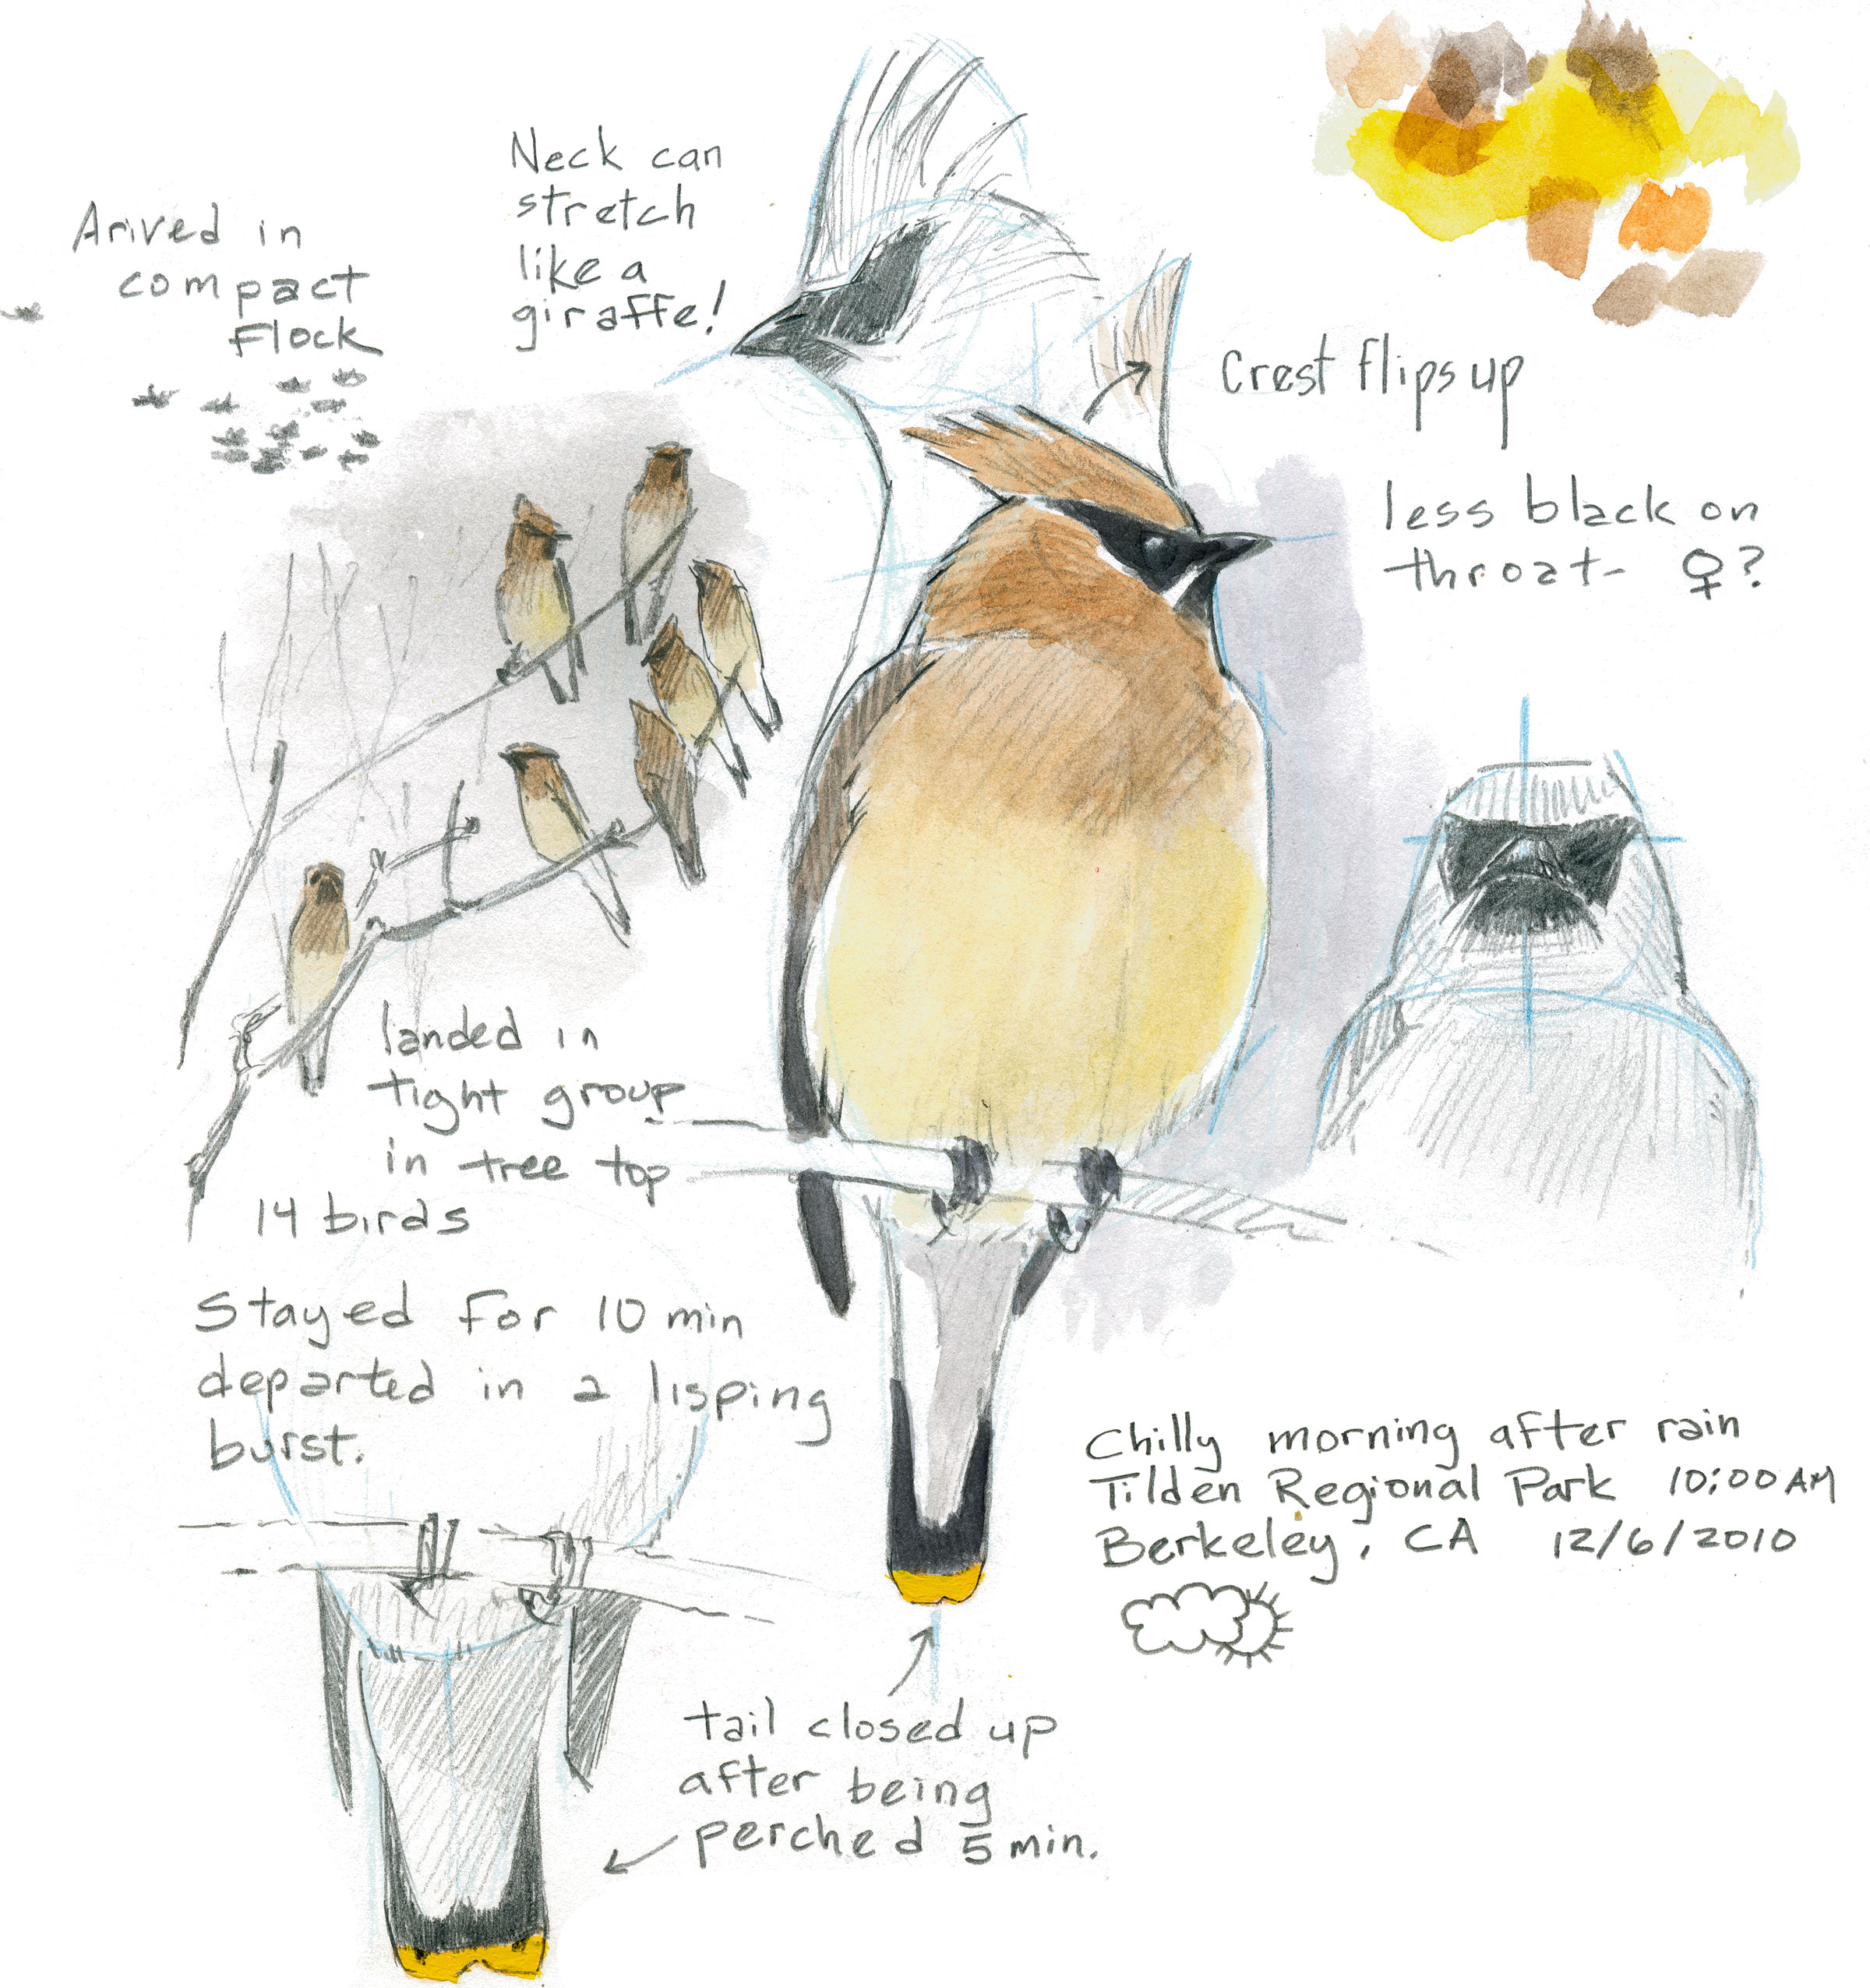 Neck can
stretch
like a
giraffe!
Arived in
compact
flock
Crest flips up
less black on
throat- ♀?
landed in
tight group
in tree top
14 birds
Stayed for 10 min
departed in a lisping
burst.
Chilly morning after rain
Tilden Regional Park 10:00 AM
Berkeley, CA 12/6/2010
tail closed up
after being
perched 5 min.